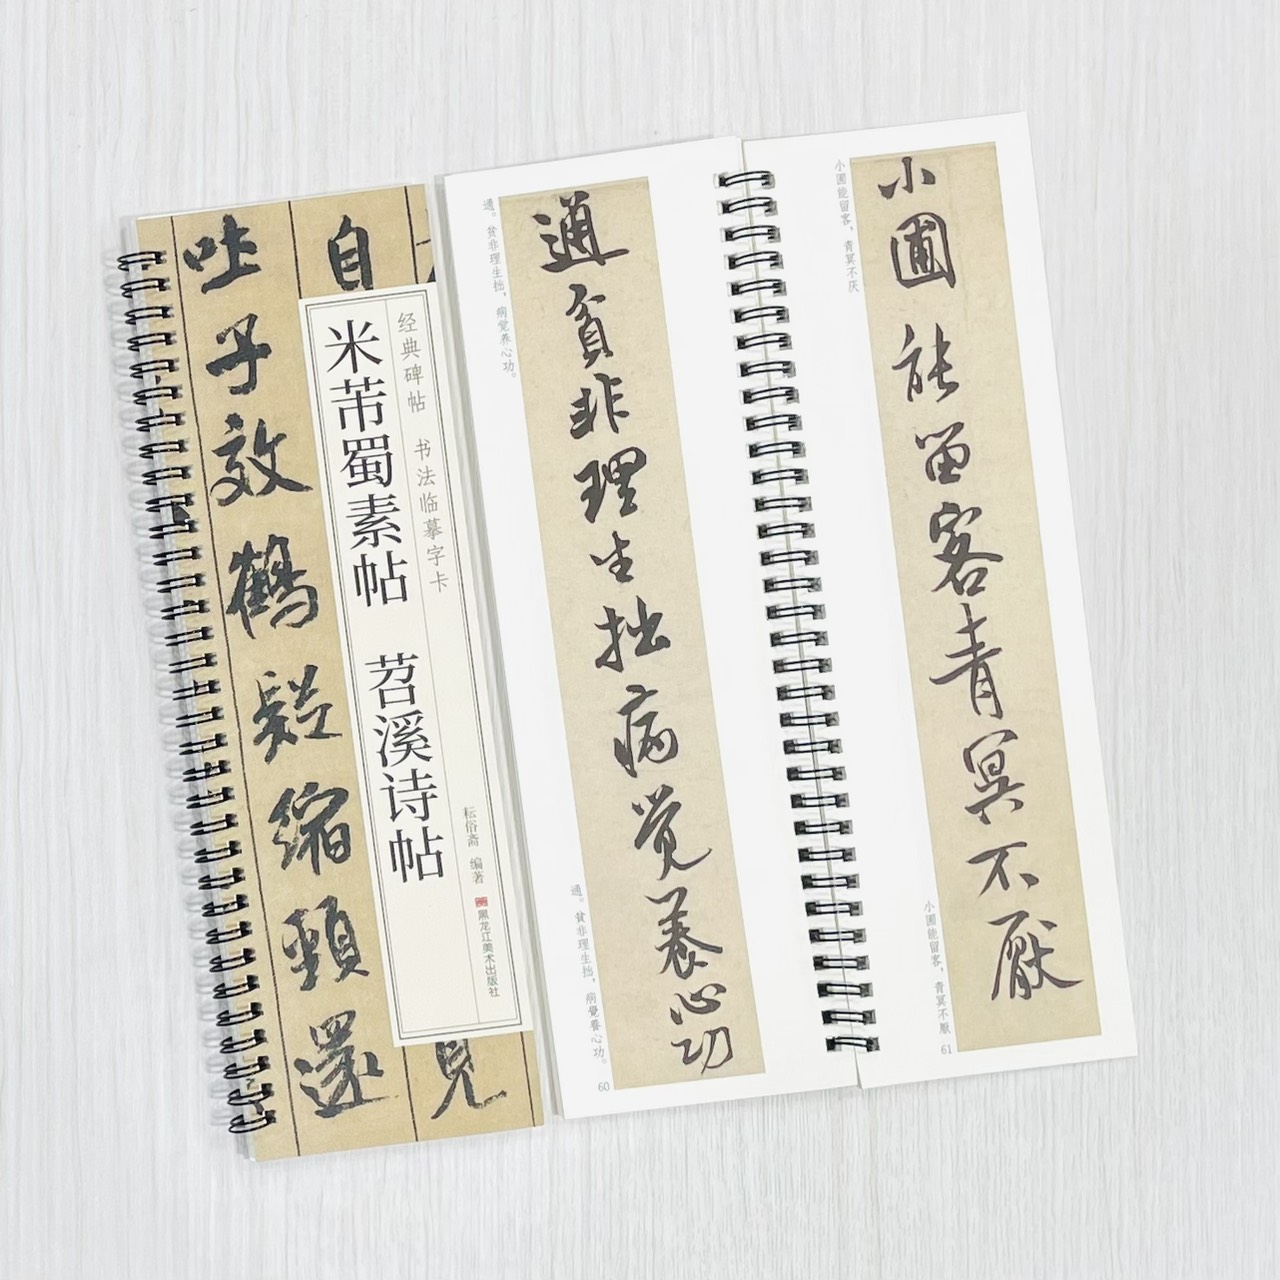 吐子效鶴疑縮頸還
自
見
经典碑帖 书法临摹字卡
米芾蜀素帖 苕溪诗帖
耘俗斋 编著
黑龙江美术出版社
通。贫非理生拙，病觉养心功。
通貧非理生拙病覺養心功
通。貧非理生拙，病覺養心功。
60
小圃能留客，青冥不厌
小圃能留客青冥不厭
小圃能留客，青冥不厭
61